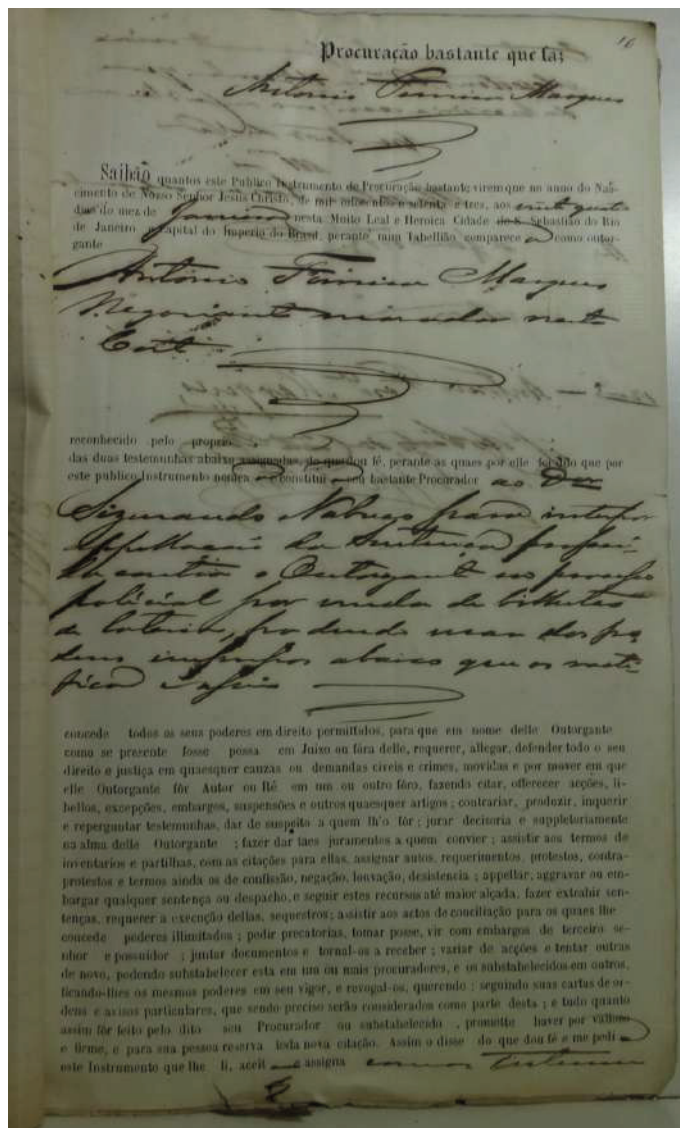 16
Procuração bastante que faz
Antonio Ferreira Marques
Saibão quantos este Publico Instrumento de Procuração bastante virem que no anno do Nas-
cimento de Nosso Senhor Jesus Christo, de mil oitocentos e setenta e tres, aos vinte quatro
dias do mez de Janeiro nesta Muito Leal e Heroica Cidade de S. Sebastião do Rio
de Janeiro e Capital do Imperio do Brasil, perante mim Tabellião comparece o como outor-
gante
Antonio Ferreira Marques
Negociante morador nesta
Corte
reconhecido pelo proprio
das duas testemunhas abaixo assignadas, do que dou fé, perante as quaes por elle foi dito que por
este publico Instrumento nomea e constitui seu bastante Procurador ao Dor
Sizenando Nabuco para interpor
appellação da sentença proferi-
da contra o Outorgante no processo
policial por venda de bilhetes
de loteria, podendo usar dos po-
deres impressos abaixo que os rati-
fica
concede todos os seus poderes em direito permittidos, para que em nome delle Outorgante
como se presente fosse possa em Juizo ou fóra delle, requerer, allegar, defender todo o seu
direito e justiça em quaesquer cauzas ou demandas civeis e crimes, movidas e por mover em que
elle Outorgante fôr Autor ou Ré em um ou outro fôro, fazendo citar, offerecer acções, li-
bellos, excepções, embargos, suspensões e outros quaesquer artigos; contrariar, produzir, inquerir
e reperguntar testemunhas, dar de suspeito a quem lh'o fôr; jurar decisoria e suppletoriamente
na alma delle Outorgante ; fazer dar taes juramentos a quem convier; assistir aos termos de
inventarios e partilhas, com as citações para ellas, assignar autos, requerimentos, protestos, contra-
protestos e termos ainda os de confissão, negação, louvação, desistencia; appellar, aggravar ou em-
bargar qualquer sentença ou despacho, e seguir estes recursos até maior alçada, fazer extrahir sen-
tenças, requerer a execução dellas, sequestros; assistir aos actos de conciliação para os quaes lhe
concede poderes illimitados; pedir precatorias, tomar posse, vir com embargos de terceiro se-
nhor e possuidor ; juntar documentos e tornal-os a receber; variar de acções e tentar outras
de novo, podendo substabelecer esta em um ou mais procuradores, e os substabelecidos em outros,
ficando-lhes os mesmos poderes em seu vigor, e revogal-os, querendo; seguindo suas cartas de or-
dens e avisos particulares, que sendo preciso serão considerados como parte desta; e tudo quanto
assim fôr feito pelo dito seu Procurador ou substabelecido , promette haver por valioso
e firme, e para sua pessoa reserva toda nova citação. Assim o disse do que dou fé e me pedi o
este Instrumento que lhe li, aceit e assigna com as